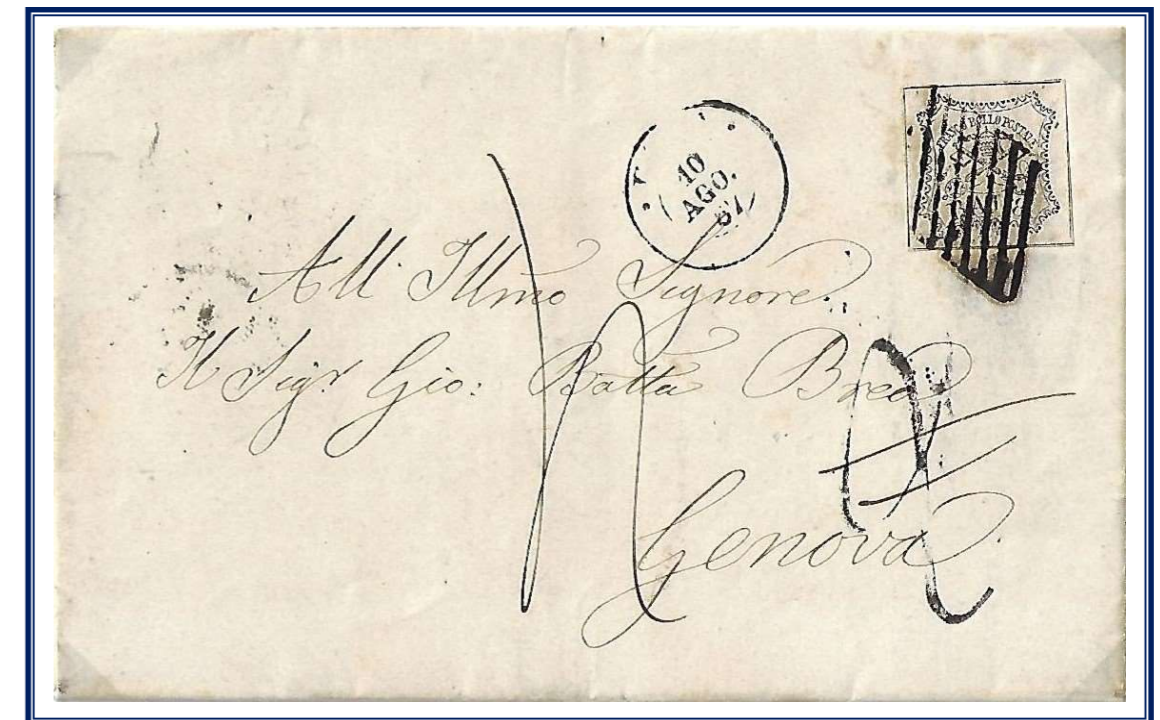 10
AGO.
67
FRANCO BOLLO POSTALE
All' Illmo Signore.
Il Sigr Gio: Batta Brea
Genova